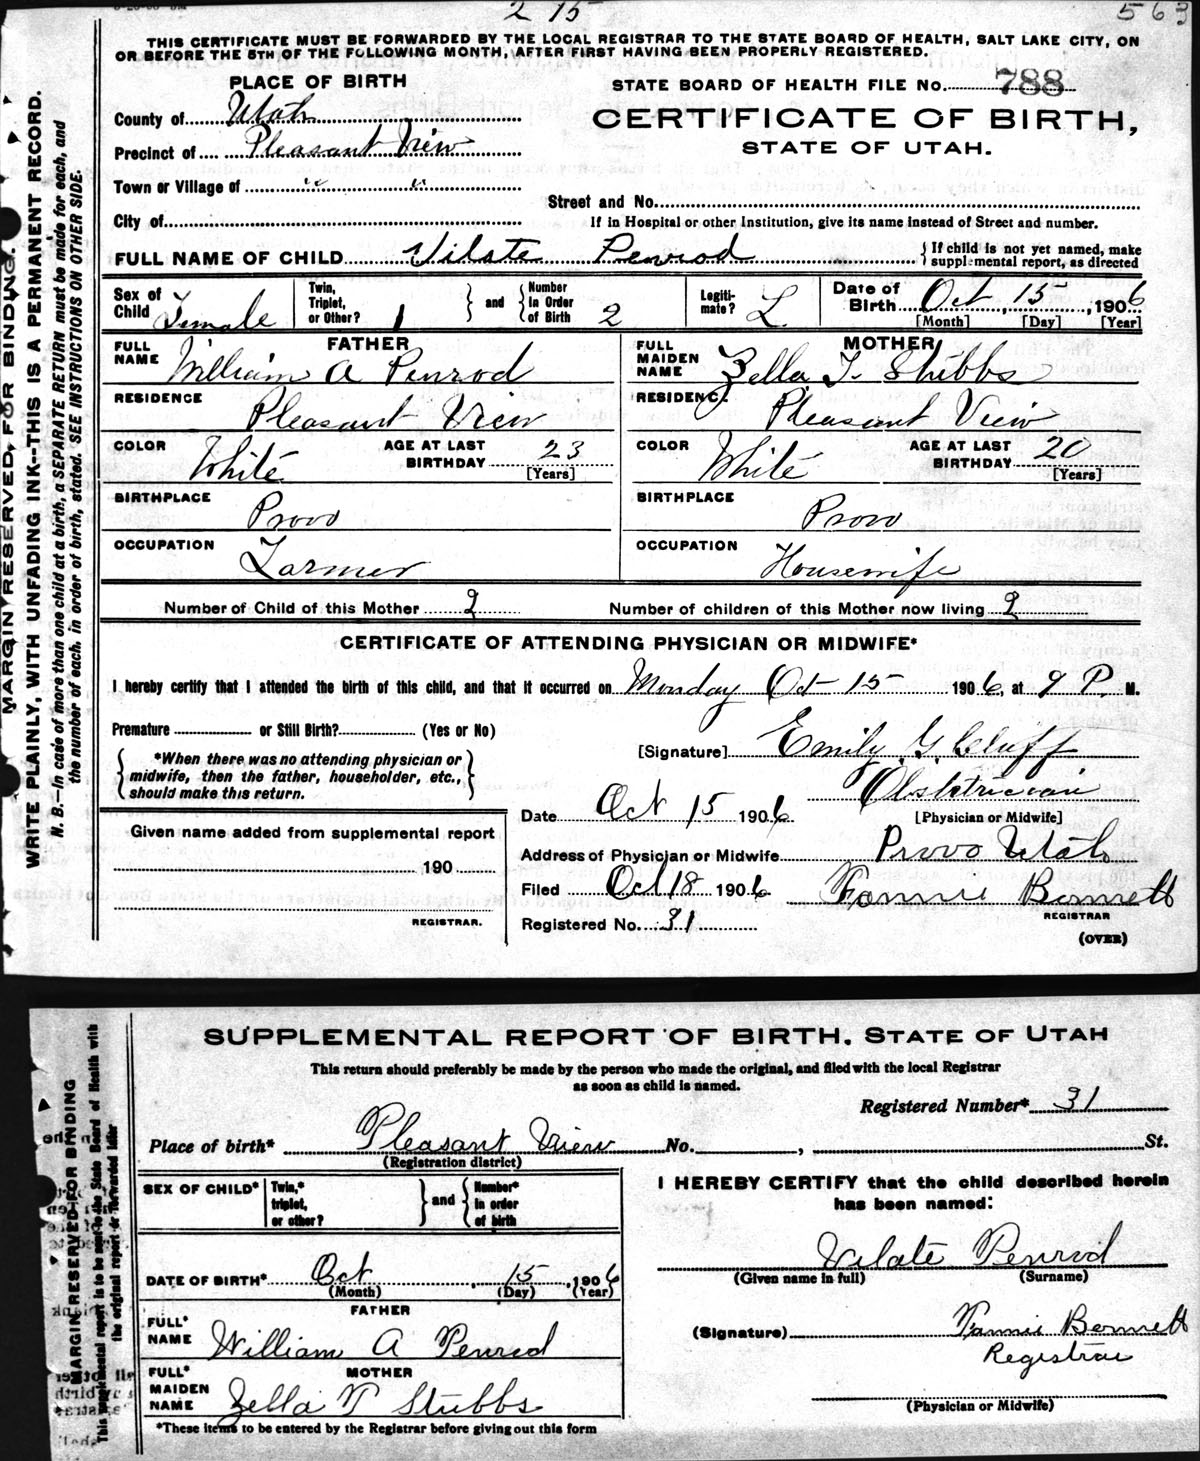 2 15
563
THIS CERTIFICATE MUST BE FORWARDED BY THE LOCAL REGISTRAR TO THE STATE BOARD OF HEALTH, SALT LAKE CITY, ON
OR BEFORE THE 5TH OF THE FOLLOWING MONTH, AFTER FIRST HAVING BEEN PROPERLY REGISTERED.
PLACE OF BIRTH
STATE BOARD OF HEALTH FILE NO. 788
County of Utah
CERTIFICATE OF BIRTH,
STATE OF UTAH.
Precinct of Pleasant View
Town or Village of " "
Street and No.
City of
If in Hospital or other Institution, give its name instead of Street and number.
FULL NAME OF CHILD Vilate Penrod
{ If child is not yet named, make
supplemental report, as directed
Sex of Child Female
Twin, Triplet, or Other? 1 } and { Number in Order of Birth 2
Legiti-mate? L
Date of Birth Oct 15, 1906
[Month] [Day] [Year]
FATHER
FULL NAME William A Penrod
RESIDENCE Pleasant View
COLOR White AGE AT LAST BIRTHDAY 23 [Years]
BIRTHPLACE Provo
OCCUPATION Farmer
MOTHER
FULL MAIDEN NAME Zella T. Stubbs
RESIDENCE Pleasant View
COLOR White AGE AT LAST BIRTHDAY 20 [Years]
BIRTHPLACE Provo
OCCUPATION Housewife
Number of Child of this Mother 2 Number of children of this Mother now living 2
CERTIFICATE OF ATTENDING PHYSICIAN OR MIDWIFE*
I hereby certify that I attended the birth of this child, and that it occurred on Monday Oct 15 1906, at 9 P. M.
Premature or Still Birth? (Yes or No)
[Signature] Emily G. Cluff
*When there was no attending physician or
midwife, then the father, householder, etc.,
should make this return.
Obstetrician
[Physician or Midwife]
Date Oct 15 1906
Given name added from supplemental report
190
REGISTRAR.
Address of Physician or Midwife Provo Utah
Filed Oct 18 1906 Fannie Bennett
REGISTRAR
Registered No. 31
(OVER)
MARGIN RESERVED, FOR BINDING.
WRITE PLAINLY, WITH UNFADING INK--THIS IS A PERMANENT RECORD.
N. B.—In case of more than one child at a birth, a SEPARATE RETURN must be made for each, and
the number of each, in order of birth, stated. SEE INSTRUCTIONS ON OTHER SIDE.
SUPPLEMENTAL REPORT OF BIRTH. STATE OF UTAH
This return should preferably be made by the person who made the original, and filed with the local Registrar
as soon as child is named.
Registered Number* 31
Place of birth* Pleasant View No. , St.
(Registration district)
SEX OF CHILD*
Twin,* triplet, or other? } and { Number* in order of birth
I HEREBY CERTIFY that the child described herein
has been named:
Vilate Penrod
(Given name in full) (Surname)
DATE OF BIRTH* Oct, 15, 1906
(Month) (Day) (Year)
FATHER
FULL* NAME William A Penrod
MOTHER
FULL* MAIDEN NAME Zella T Stubbs
*These items to be entered by the Registrar before giving out this form
(Signature) Fannie Bennett
Registrar
(Physician or Midwife)
MARGIN RESERVED FOR BINDING
This supplemental report is to be sent to the State Board of Health with
the original report or forwarded later